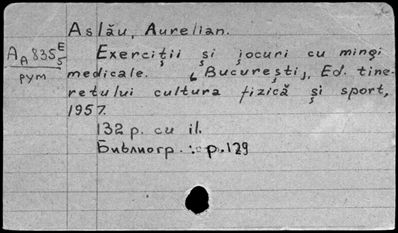 Aslău, Aurelian.
AA 835 E/5
рум
Exerciții și jocuri cu mingi
medicale. [București], Ed. tine-
retului cultura fizică și sport,
1957.
132 p. cu il.
Библиогр.: p. 129